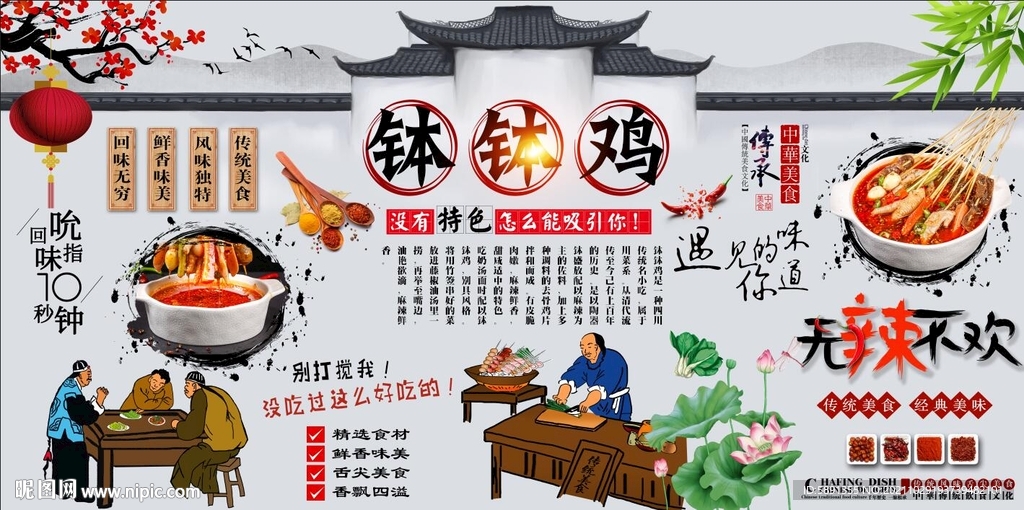 钵钵鸡
没有特色怎么能吸引你！
传统美食
风味独特
鲜香味美
回味无穷
吮指
回味10秒钟
钵钵鸡是一种四川
传统名小吃，属于
川菜系，从清代流
传至今已有上百年
的历史，是以陶器
钵盛放配以麻辣为
主的佐料，加上多
种调料的去骨鸡片
拌和而成，有皮脆
肉嫩，麻辣鲜香，
甜咸适中的特色。
吃奶汤面时配以钵
钵鸡，别具风格。
将用竹签串好的菜
放进藤椒油汤里一
捞，再举至嘴边，
油艳欲滴，麻辣鲜
香。
文化
中華美食
傳承
【中國傳統美食文化】
遇见你的味道
无辣不欢
传统美食 经典美味
别打搅我！
没吃过这么好吃的！
精选食材
鲜香味美
舌尖美食
香飘四溢
传统美食
CHAFING DISH
昵图网 www.nipic.com